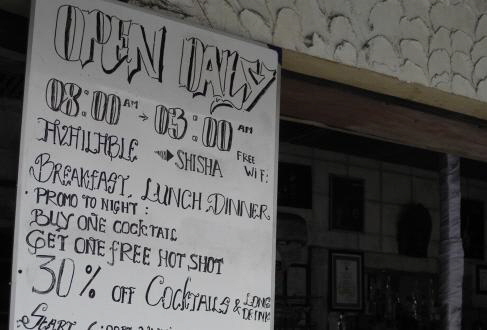 OPEN DAILY
08:00 AM → 03:00 AM
AVAILABLE SHISHA FREE WIFI
BREAKFAST, LUNCH DINNER
· PROMO TO NIGHT :
BUY ONE COCKTAIL
GET ONE FREE HOT SHOT
· 30% OFF COCKTAILS & LONG DRINK
START